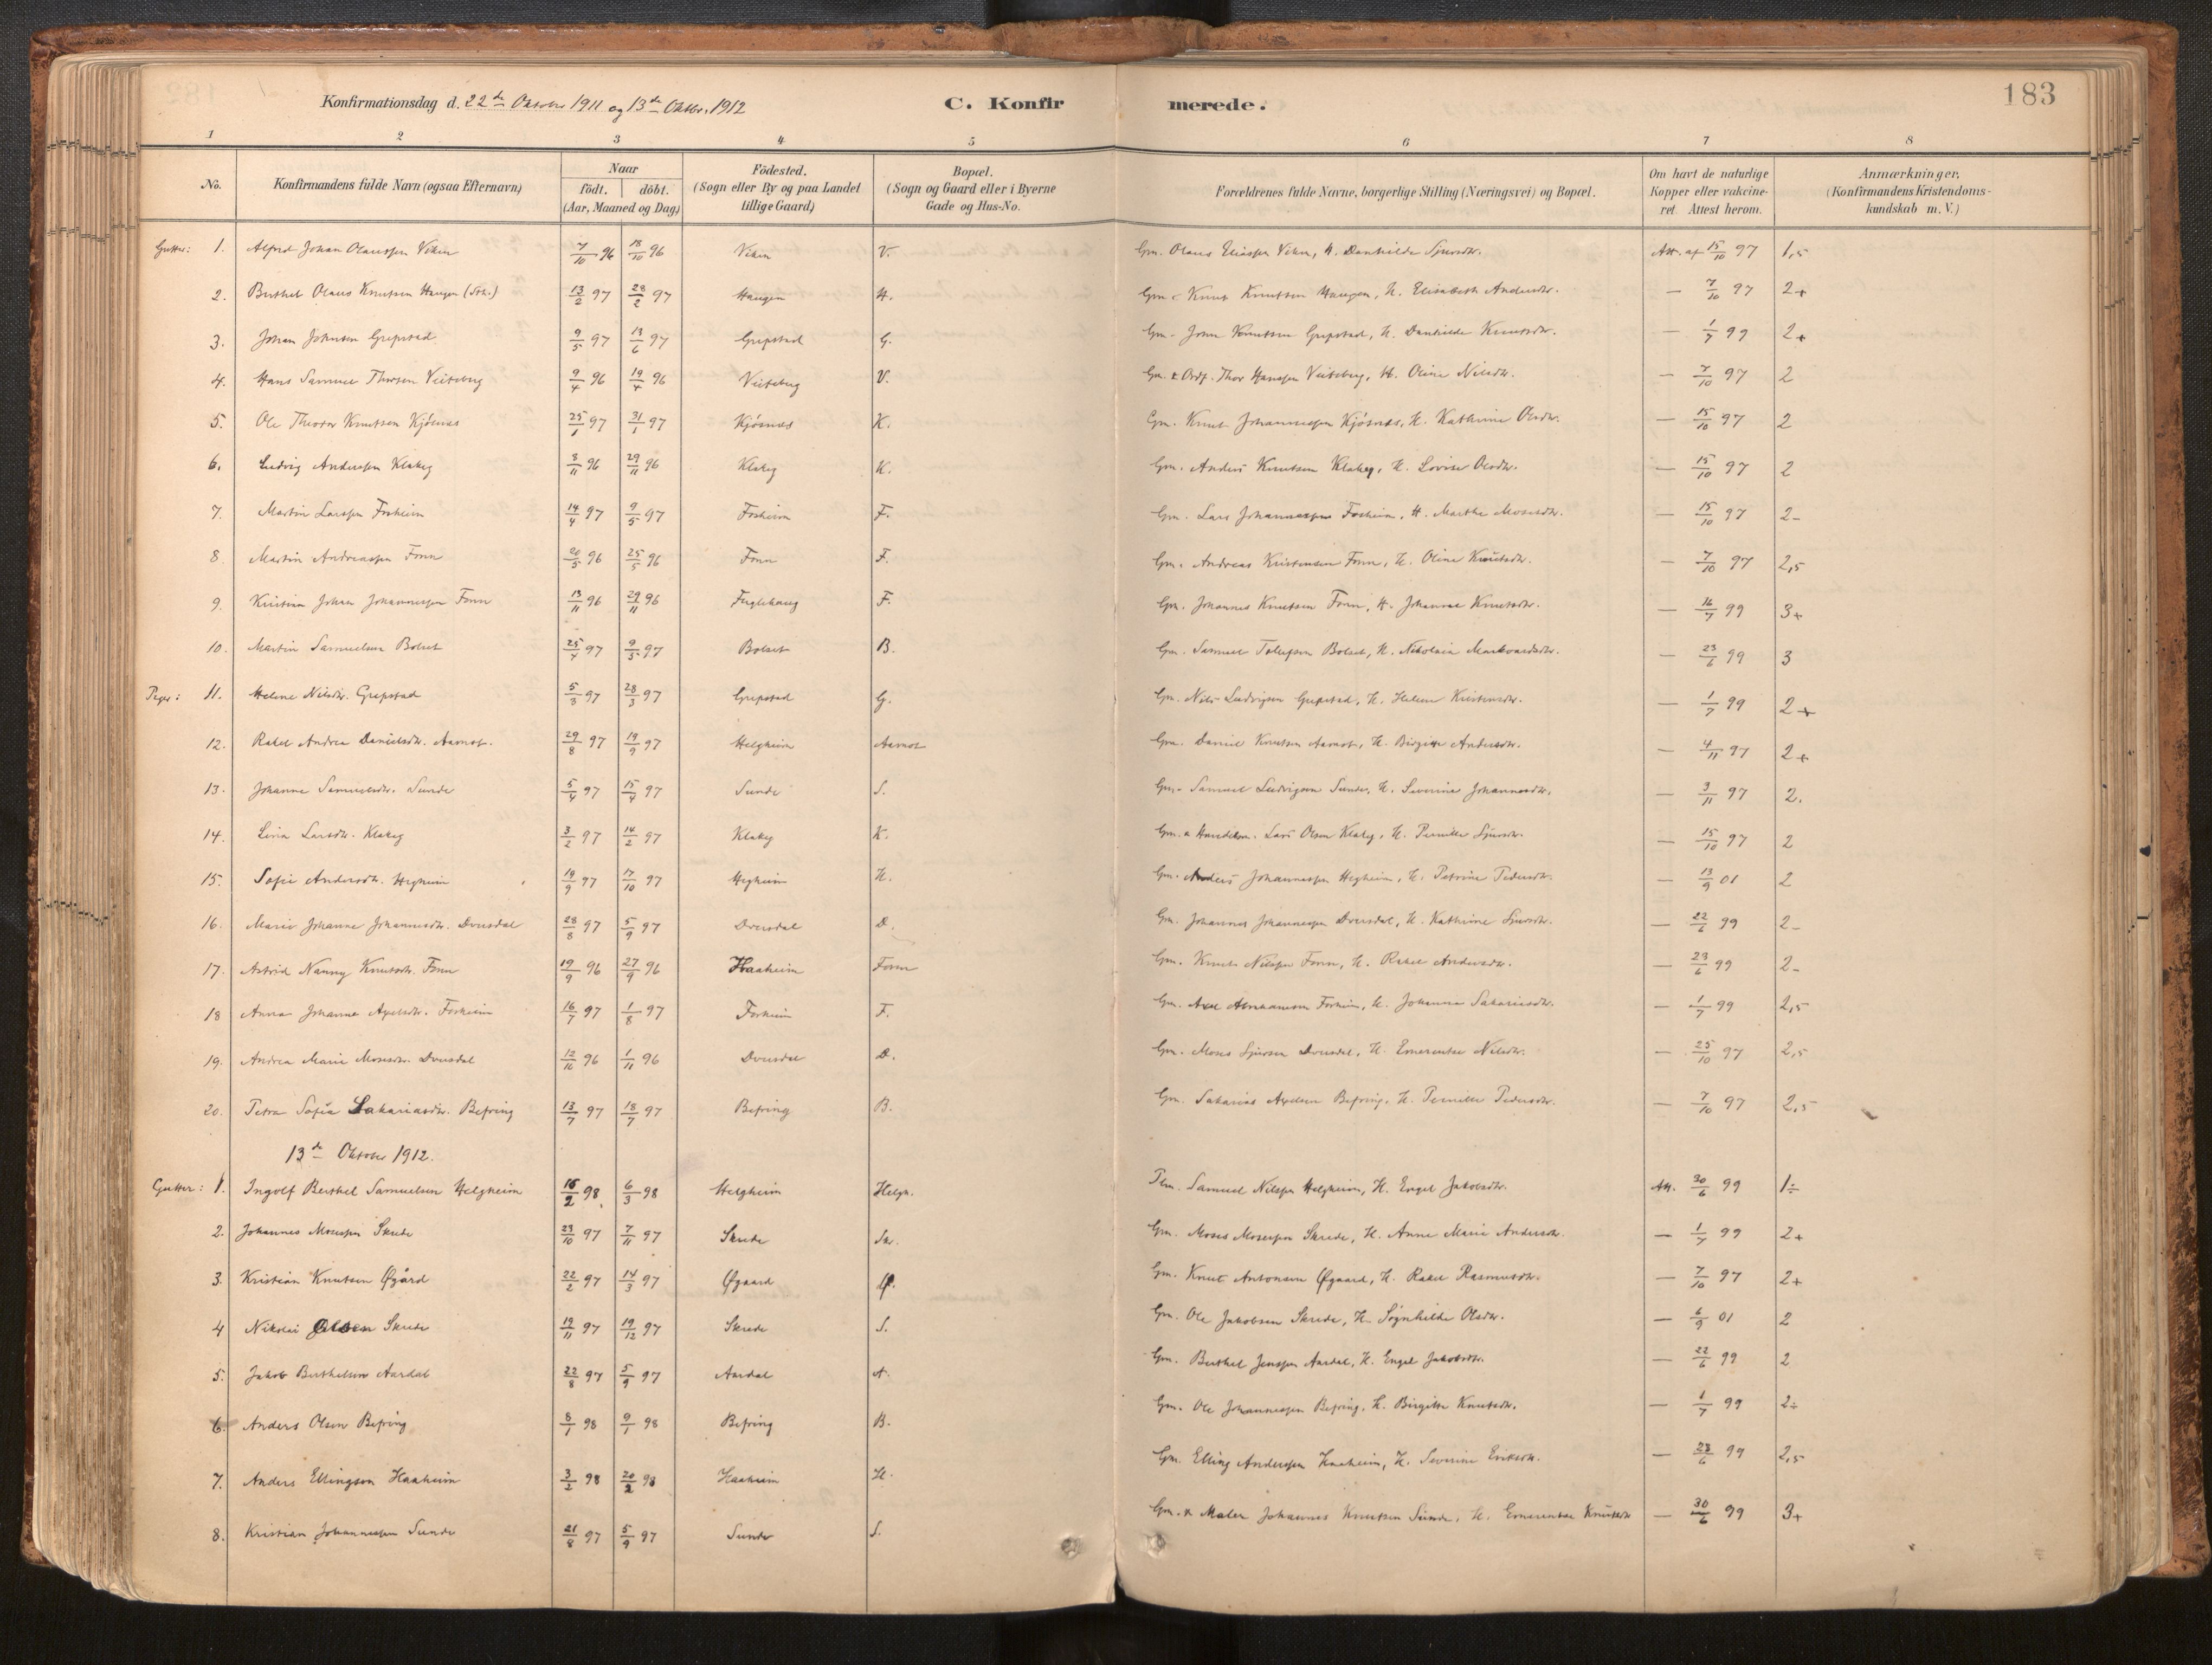 183
Konfirmationsdag d. 22de Oktober 1911 og 13de Oktbr. 1912 C. Konfirmerede.
1 2 3 4 5 6 7 8
No. Konfirmandens fulde Navn (ogsaa Efternavn) Naar födt. döbt. (Aar, Maaned og Dag) Födested. (Sogn eller By og paa Landet tillige Gaard) Bopæl. (Sogn og Gaard eller i Byerne Gade og Hus-No. Forældrenes fulde Navne, borgerlige Stilling (Næringsvei) og Bopæl. Om havt de naturlige Kopper eller vakcineret. Attest herom. Anmærkninger. (Konfirmandens Kristendomskundskab m. V.)
Gutter: 1. Alfred Johan Olaussen Viken 7/10 96 18/10 96 Viken V. Gm. Olaus Eliassen Viken, H. Danhilde Sjursdtr. Att. af 15/10 97 1,5
2. Berthel Olaus Knutsen Haugen 13/2 97 28/2 97 Haugen H. Gm. Knut Knutsen Haugen, H. Elisabeth Andersdtr. — 7/10 97 2+
3. Johan Johnsen Grepstad 9/5 97 13/6 97 Grepstad G. Gm. John Knutsen Grepstad, H. Danhilde Knutsdtr. — 1/7 99 2+
4. Hans Samuel Thorsen Veiteberg 9/4 96 19/4 96 Veiteberg V. Gm. & Ordf. Thor Hanssen Veiteberg, H. Oline Nilsdtr. — 7/10 97 2
5. Ole Theodor Knutsen Kjösnes 25/1 97 31/1 97 Kjösnæs K. Gm. Knut Johannessen Kjösnæs, H. Kathrine Olsdtr. — 15/10 97 2
6. Ludvig Anderssen Klakeg 3/11 96 29/11 96 Klakeg K. Gm. Anders Knutsen Klakeg, H. Lovise Olsdtr. — 15/10 97 2
7. Martin Larssen Forheim 14/4 97 9/5 97 Forheim F. Gm. Lars Johannessen Forheim, H. Marthe Mosesdtr. — 15/10 97 2-
8. Martin Andreassen Fonn 20/5 96 25/5 96 Fonn F. Gm. Andreas Kristensen Fonn, H. Oline Knutsdtr. — 7/10 97 2,5
9. Kristian Johan Johannessen Fonn 13/11 96 29/11 96 Fuglehaug F. Gm. Johannes Knutsen Fonn, H. Johanne Knutsdtr. — 16/7 99 3+
10. Martin Samuelsen Bolset 25/4 97 9/5 97 Bolset B. Gm. Samuel Tollefsen Bolset, H. Nikolaia Markvardsdtr. — 23/6 99 3
Piger: 11. Helene Nilsdtr. Grepstad 5/3 97 28/3 97 Grepstad G. Gm. Nils Ludvigsen Grepstad, H. Helene Kristensdtr. — 1/7 99 2+
12. Rakel Andrea Danielsdtr. Aamot. 29/8 97 19/9 97 Helgheim Aamot Gm. Daniel Knutsen Aamot, H. Birgitte Andersdtr. — 4/11 97 2+
13. Johanne Samuelsdtr. Sunde 5/4 97 15/4 97 Sunde S. Gm. Samuel Ludvigsen Sunde, H. Severine Johannesdtr. — 3/11 97 2.
14. Lina Larsdtr. Klakeg 3/2 97 14/2 97 Klakeg K. Gm. & Handelsm. Lars Olsen Klakeg, H. Pernille Sjursdtr. — 15/10 97 2
15. Sofie Andersdtr. Hegheim 19/9 97 17/10 97 Hegheim H. Gm. Anders Johannessen Hegheim, H. Petrine Pedersdtr. — 13/9 01 2
16. Marie Johanne Johannesdtr. Dvursdal 28/8 97 5/9 97 Dvursdal D. Gm. Johannes Johannessen Dvursdal, H. Kathrine Sjursdtr. — 22/6 99 2-
17. Astrid Nanny Knutsdtr. Fonn 19/9 96 27/9 96 Haaheim Fonn Gm. Knut Nilssen Fonn, H. Rakel Andersdtr. — 23/6 99 2-
18 Anna Johanne Axelsdtr. Forheim 16/7 97 1/8 97 Forheim F. Gm. Axel Abrahamsen Forheim, H. Johanne Sakariasdtr. — 1/7 99 2,5
19. Andrea Marie Mosesdtr. Dvursdal 12/10 96 1/11 96 Dvursdal D. Gm. Moses Sjursen Dvursdal, H. Emerentse Nilsdtr. — 25/10 97 2,5
20. Petra Sofia Sakariasdtr. Befring 13/7 97 18/7 97 Befring B. Gm. Sakarias Axelsen Befring, H. Pernille Pedersdtr. — 7/10 97 2,5
13de Oktober 1912.
Gutter: 1. Ingolf Berthel Samuelsen Helgheim 15/2 98 6/3 98 Helgheim Helgh. Plm. Samuel Nilssen Helgheim, H. Engel Jakobsdtr. Att. 30/6 99 1÷
2. Johannes Mosessen Skrede 23/10 97 7/11 97 Skrede Skr. Gm. Moses Mosessen Skrede, H. Anne Marie Andersdtr. — 1/7 99 2+
3. Kristian Knutsen Øgård 22/2 97 14/3 97 Øgaard Ø. Gm. Knut Antonsen Øgaard, H. Rakel Rasmusdtr. — 7/10 97 2+
4 Nikolai Olsen Skrede 19/11 97 19/12 97 Skrede S. Gm. Ole Jakobsen Skrede, H. Søgnhilde Olsdtr. — 6/9 01 2
5. Jakob Berthelsen Aardal 22/8 97 5/9 97 Aardal A. Gm. Berthel Jenssen Aardal, H. Engel Jakobsdtr. — 22/6 99 2
6. Anders Olsen Befring 8/1 98 9/1 98 Befring B. Gm. Ole Johannessen Befring, H. Birgitte Knutsdtr. — 1/7 99 2÷
7. Anders Ellingsen Haaheim 3/2 98 20/2 98 Haaheim H. Gm. Elling Anderssen Haaheim, H. Severine Eriksdtr. — 23/6 99 2,5
8. Kristian Johannessen Sunde 21/8 97 5/9 97 Sunde S. Gm. & Maler Johannes Knutsen Sunde, H. Emerentse Knutsdtr — 30/6 99 3+